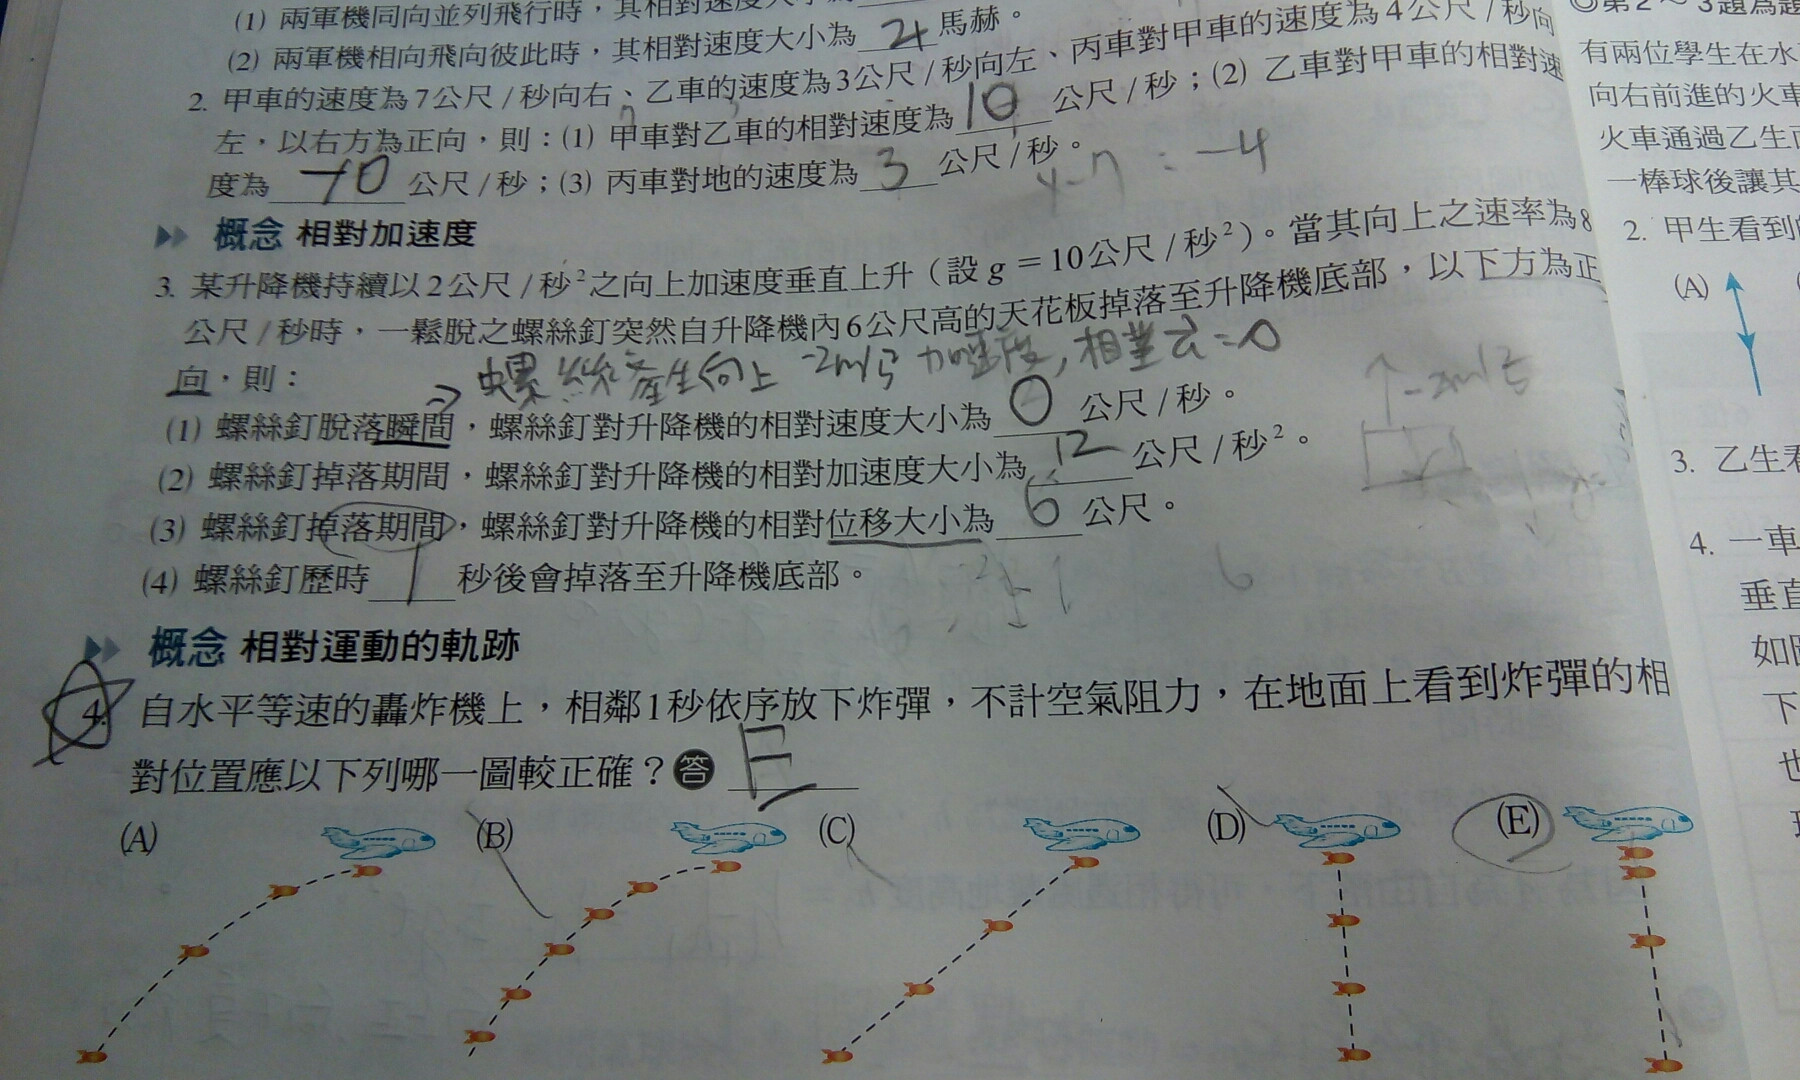 (1) 兩軍機同向並列飛行時，其相對速度大小為
(2) 兩軍機相向飛向彼此時，其相對速度大小為 4 馬赫。
2. 甲車的速度為7公尺/秒向右、乙車的速度為3公尺/秒向左、丙車對甲車的速度為4公尺/秒向
左，以右方為正向，則：(1) 甲車對乙車的相對速度為 10 公尺/秒；(2) 乙車對甲車的相對速
度為 -10 公尺/秒；(3) 丙車對地的速度為 3 公尺/秒。
概念 相對加速度
3. 某升降機持續以2公尺/秒²之向上加速度垂直上升（設g＝10公尺/秒²）。當其向上之速率為8
公尺/秒時，一鬆脫之螺絲釘突然自升降機內6公尺高的天花板掉落至升降機底部，以下方為正
向，則：
(1) 螺絲釘脫落瞬間，螺絲釘對升降機的相對速度大小為 0 公尺/秒。
(2) 螺絲釘掉落期間，螺絲釘對升降機的相對加速度大小為 12 公尺/秒²。
(3) 螺絲釘掉落期間，螺絲釘對升降機的相對位移大小為 6 公尺。
(4) 螺絲釘歷時 1 秒後會掉落至升降機底部。
6
概念 相對運動的軌跡
4. 自水平等速的轟炸機上，相鄰1秒依序放下炸彈，不計空氣阻力，在地面上看到炸彈的相
對位置應以下列哪一圖較正確？答 E
(A) (B) (C) (D) (E)
◎第2～3題為題
有兩位學生在水
向右前進的火車
火車通過乙生
一棒球後讓其
2. 甲生看到
(A)
3. 乙生看
4. 一車
垂直
如圖
下
也